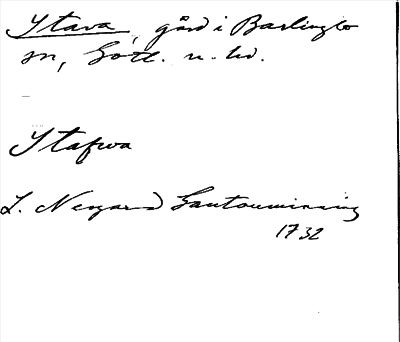 Stava, gård i Barlingbo
sn, Gotl. n. hd.
Stafwa
L. Nergard Gautouminning
1732